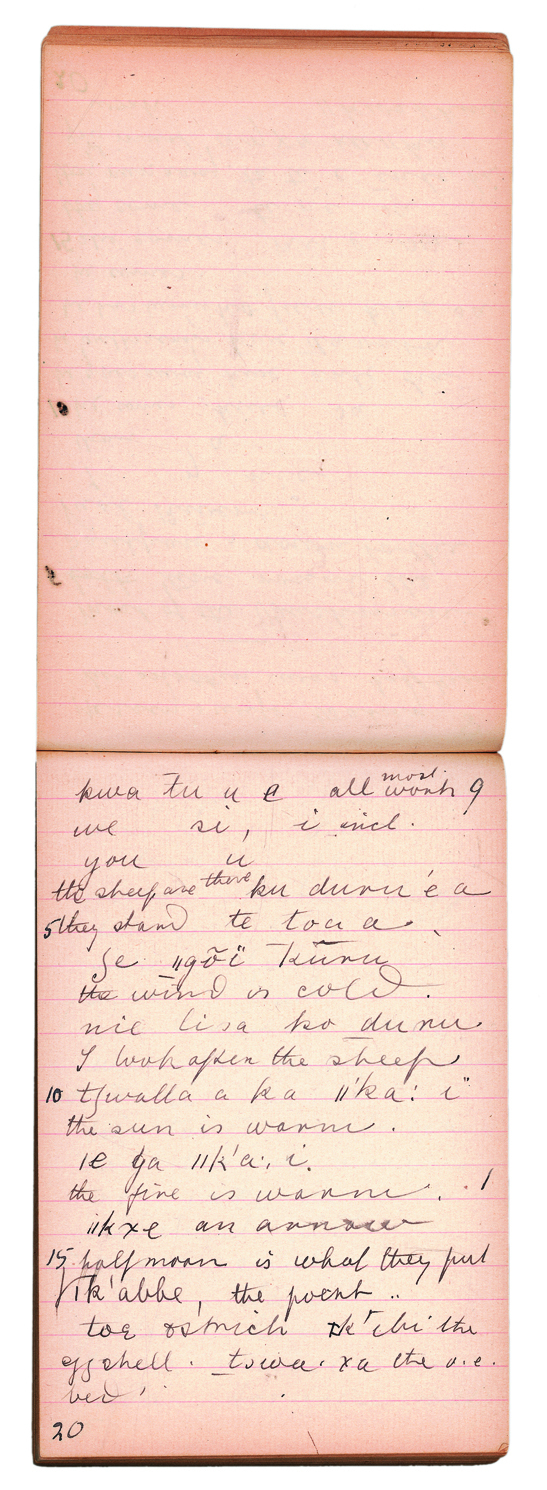 kwa tu u e all most work 9
we si, i incl.
you u
the sheep are there ku duru é a
5 they stand te toa a
ʃe ǁgõï kūru
the wind is cold.
nie lisa ko duru
I look after the sheep
10 tʃwalla a ka ǁ'ka: i
the sun is warm.
ǀe ga ǁk'a: i.
the fire is warm. 1
ǁkxe an arrow
15 half moon is what they put
ǀk'abbe, the point ..
toe ostrich k'ubi the
egg shell. tswa: xa the o.e.
bed
20